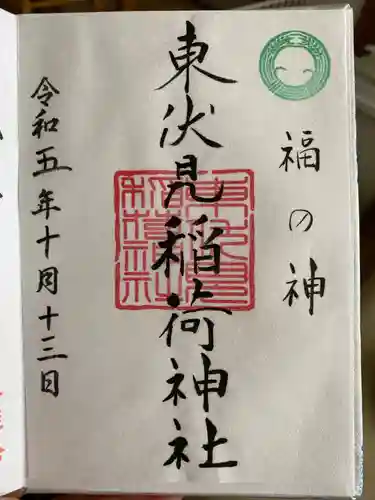 福の神
東伏見稲荷神社
令和五年十月十三日